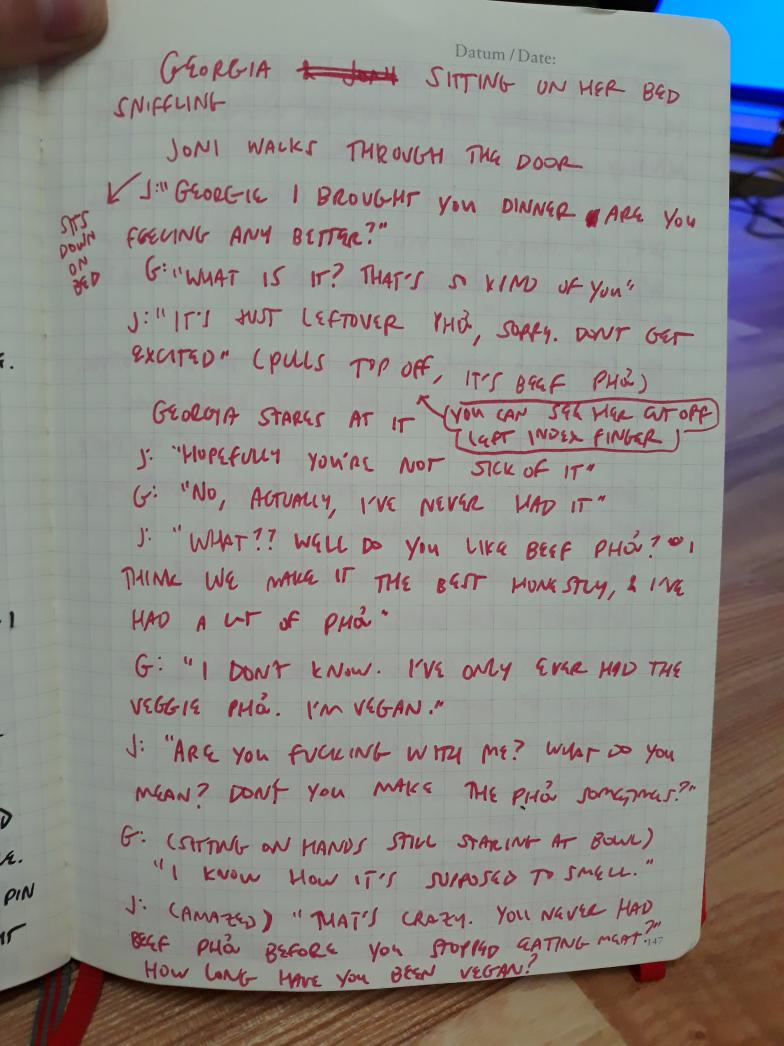 Datum / Date:
GEORGIA SITTING ON HER BED
SNIFFLING
JONI WALKS THROUGH THE DOOR
J: "GEORGIE I BROUGHT YOU DINNER ARE YOU
FEELING ANY BETTER?"
SITS
DOWN
ON
BED
G: "WHAT IS IT? THAT'S SO KIND OF YOU"
J: "IT'S JUST LEFTOVER PHỞ, SORRY. DON'T GET
EXCITED" (PULLS TOP OFF, IT'S BEEF PHỞ)
GEORGIA STARES AT IT
(YOU CAN SEE HER CUT OFF
LEFT INDEX FINGER)
J: "HOPEFULLY YOU'RE NOT SICK OF IT"
G: "NO, ACTUALLY, I'VE NEVER HAD IT"
J: "WHAT?? WELL DO YOU LIKE BEEF PHỞ? I
THINK WE MAKE IT THE BEST HONESTLY, & I'VE
HAD A LOT OF PHỞ"
G: "I DON'T KNOW. I'VE ONLY EVER HAD THE
VEGGIE PHỞ. I'M VEGAN."
J: "ARE YOU FUCKING WITH ME? WHAT DO YOU
MEAN? DON'T YOU MAKE THE PHỞ SOMETIMES?"
G: (SITTING ON HANDS STILL STARING AT BOWL)
"I KNOW HOW IT'S SUPPOSED TO SMELL."
J: (AMAZED) "THAT'S CRAZY. YOU NEVER HAD
BEEF PHỞ BEFORE YOU STOPPED EATING MEAT?"
HOW LONG HAVE YOU BEEN VEGAN?
147
PIN